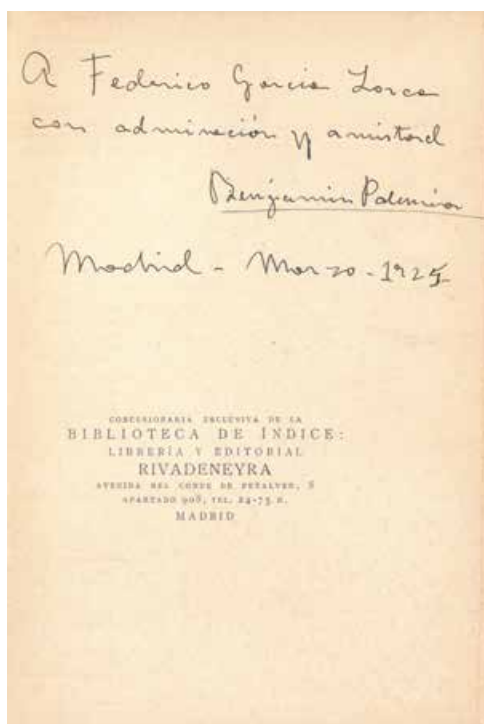 A Federico García Lorca
con admiración y amistad
Benjamín Palencia
Madrid - Marzo - 1925
CONCESIONARIA EXCLUSIVA DE LA
BIBLIOTECA DE ÍNDICE:
LIBRERÍA Y EDITORIAL
RIVADENEYRA
AVENIDA DEL CONDE DE PEÑALVER, 8
APARTADO 908, TEL. 24-73 M.
MADRID